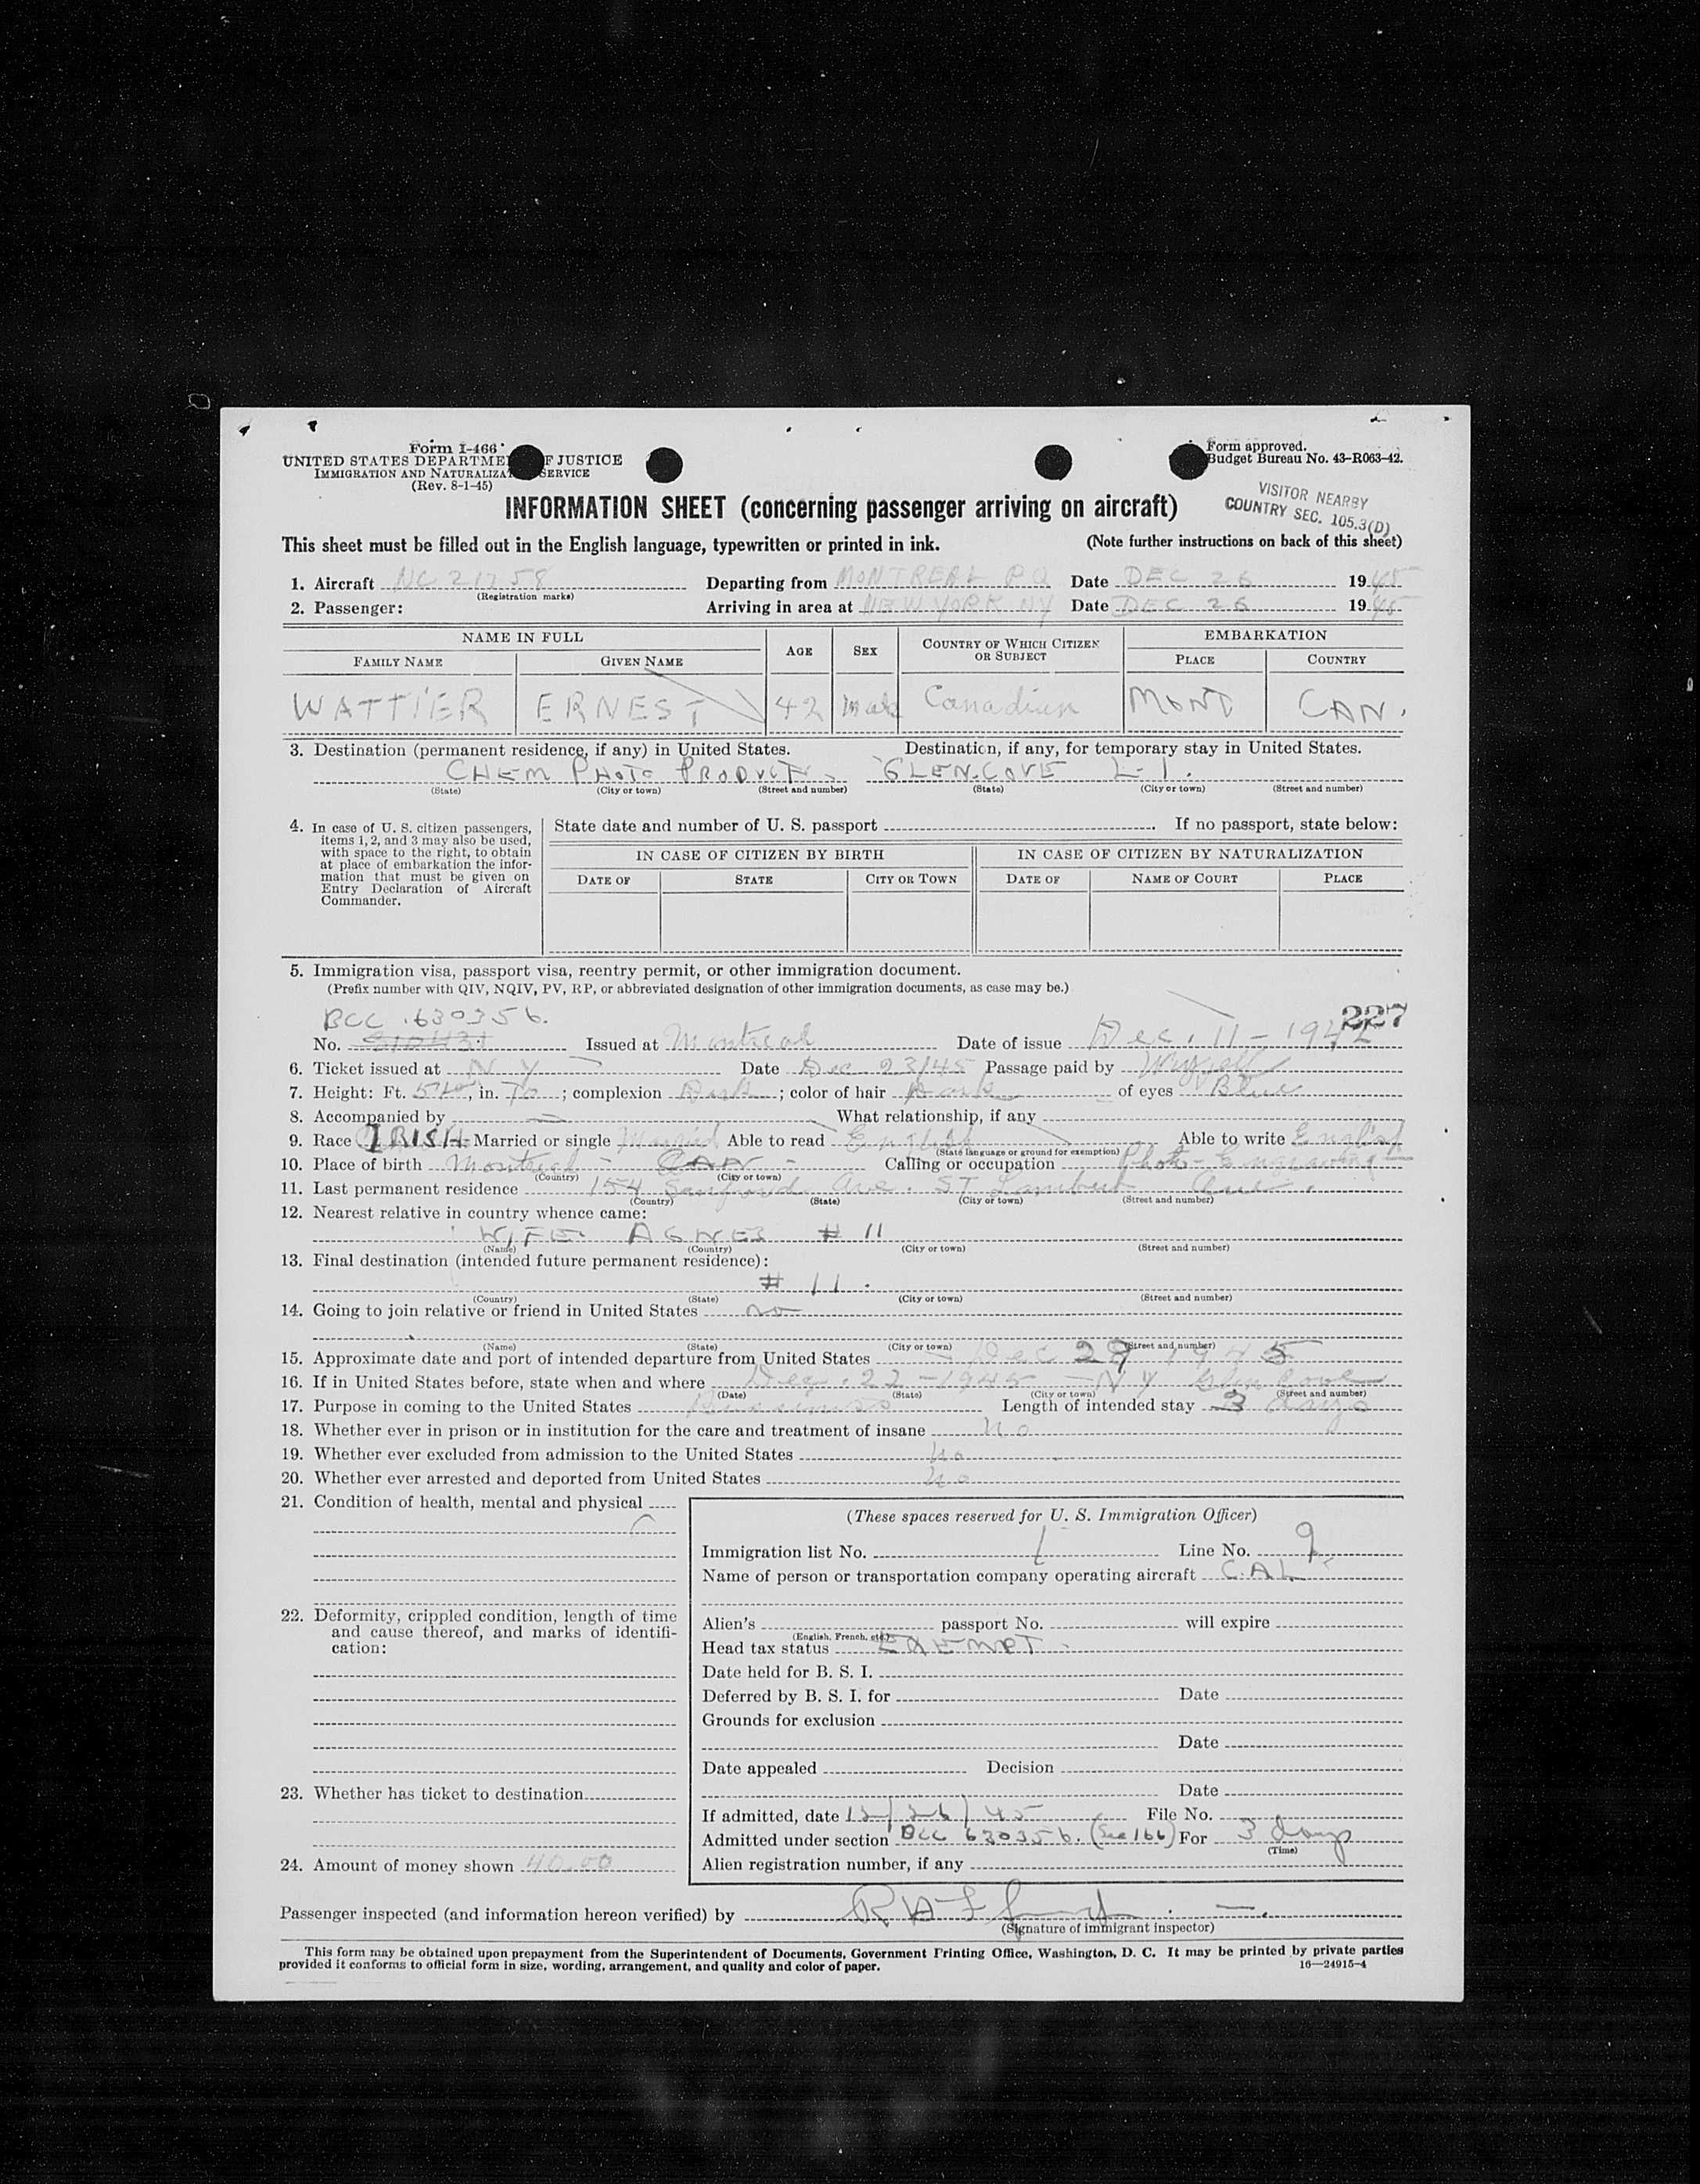 Form I-466
UNITED STATES DEPARTMENT OF JUSTICE
IMMIGRATION AND NATURALIZATION SERVICE
(Rev. 8-1-45)
Form approved.
Budget Bureau No. 43-R063-42.
VISITOR NEARBY
COUNTRY SEC. 105.3(D)
INFORMATION SHEET (concerning passenger arriving on aircraft)
This sheet must be filled out in the English language, typewritten or printed in ink. (Note further instructions on back of this sheet)
1. Aircraft NC 21758 Departing from MONTREAL PQ Date DEC 26 1945
(Registration marks)
2. Passenger: Arriving in area at NEW YORK NY Date DEC 26 1945
NAME IN FULL AGE SEX COUNTRY OF WHICH CITIZEN OR SUBJECT EMBARKATION
FAMILY NAME GIVEN NAME PLACE COUNTRY
WATTIER ERNEST 42 Male Canadian MONT CAN.
3. Destination (permanent residence, if any) in United States. Destination, if any, for temporary stay in United States.
CHEM PHOTO PRODUCT GLEN COVE L.I.
(State) (City or town) (Street and number) (State) (City or town) (Street and number)
4. In case of U. S. citizen passengers, items 1, 2, and 3 may also be used, with space to the right, to obtain at place of embarkation the information that must be given on Entry Declaration of Aircraft Commander.
State date and number of U. S. passport . If no passport, state below:
IN CASE OF CITIZEN BY BIRTH IN CASE OF CITIZEN BY NATURALIZATION
DATE OF STATE CITY OR TOWN DATE OF NAME OF COURT PLACE
5. Immigration visa, passport visa, reentry permit, or other immigration document.
(Prefix number with QIV, NQIV, PV, RP, or abbreviated designation of other immigration documents, as case may be.)
227
BCC 630356.
No. Issued at Montreal Date of issue Dec. 11-1942
6. Ticket issued at N Y Date Dec 23/45 Passage paid by
7. Height: Ft. , in. ; complexion Dark ; color of hair Dark of eyes Blue
8. Accompanied by — What relationship, if any
9. Race IRISH Married or single Married Able to read English Able to write English
(State language or ground for exemption)
10. Place of birth Montreal - CAN - Calling or occupation Photo-Engraving
(Country) (City or town)
11. Last permanent residence 154 Sanford Ave. ST Lambert Que.
(Country) (State) (City or town) (Street and number)
12. Nearest relative in country whence came:
WIFE AGNES # 11
(Name) (Country) (City or town) (Street and number)
13. Final destination (intended future permanent residence):
# 11.
(Country) (State) (City or town) (Street and number)
14. Going to join relative or friend in United States no
(Name) (State) (City or town) (Street and number)
15. Approximate date and port of intended departure from United States Dec 29 1945
16. If in United States before, state when and where Dec. 22-1945 - NY Glen Cove
(Date) (State) (City or town) (Street and number)
17. Purpose in coming to the United States Business Length of intended stay 3 days
18. Whether ever in prison or in institution for the care and treatment of insane no
19. Whether ever excluded from admission to the United States no
20. Whether ever arrested and deported from United States no
21. Condition of health, mental and physical
22. Deformity, crippled condition, length of time and cause thereof, and marks of identification:
23. Whether has ticket to destination
24. Amount of money shown 40.00
(These spaces reserved for U. S. Immigration Officer)
Immigration list No. 1 Line No. 9
Name of person or transportation company operating aircraft C.A.L.
Alien's passport No. will expire
(English, French, etc.)
Head tax status EXEMPT
Date held for B. S. I.
Deferred by B. S. I. for Date
Grounds for exclusion
Date
Date appealed Decision
Date
If admitted, date 12/26/45 File No.
Admitted under section BCC 630356. (Sec 166) For 3 days
(Time)
Alien registration number, if any
Passenger inspected (and information hereon verified) by
(Signature of immigrant inspector)
This form may be obtained upon prepayment from the Superintendent of Documents, Government Printing Office, Washington, D. C. It may be printed by private parties
provided it conforms to official form in size, wording, arrangement, and quality and color of paper. 16—24915-4